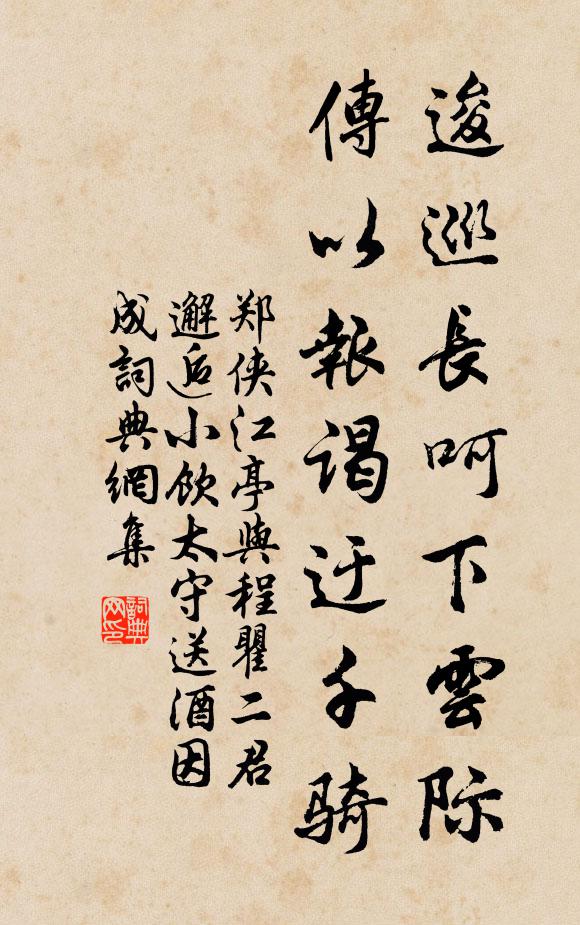 逡巡長呵下雲際
傳以報謁迂千騎
郑侠江亭與程瞿二君
邂逅小飲太守送酒因
成詞典網集
詞典
网印